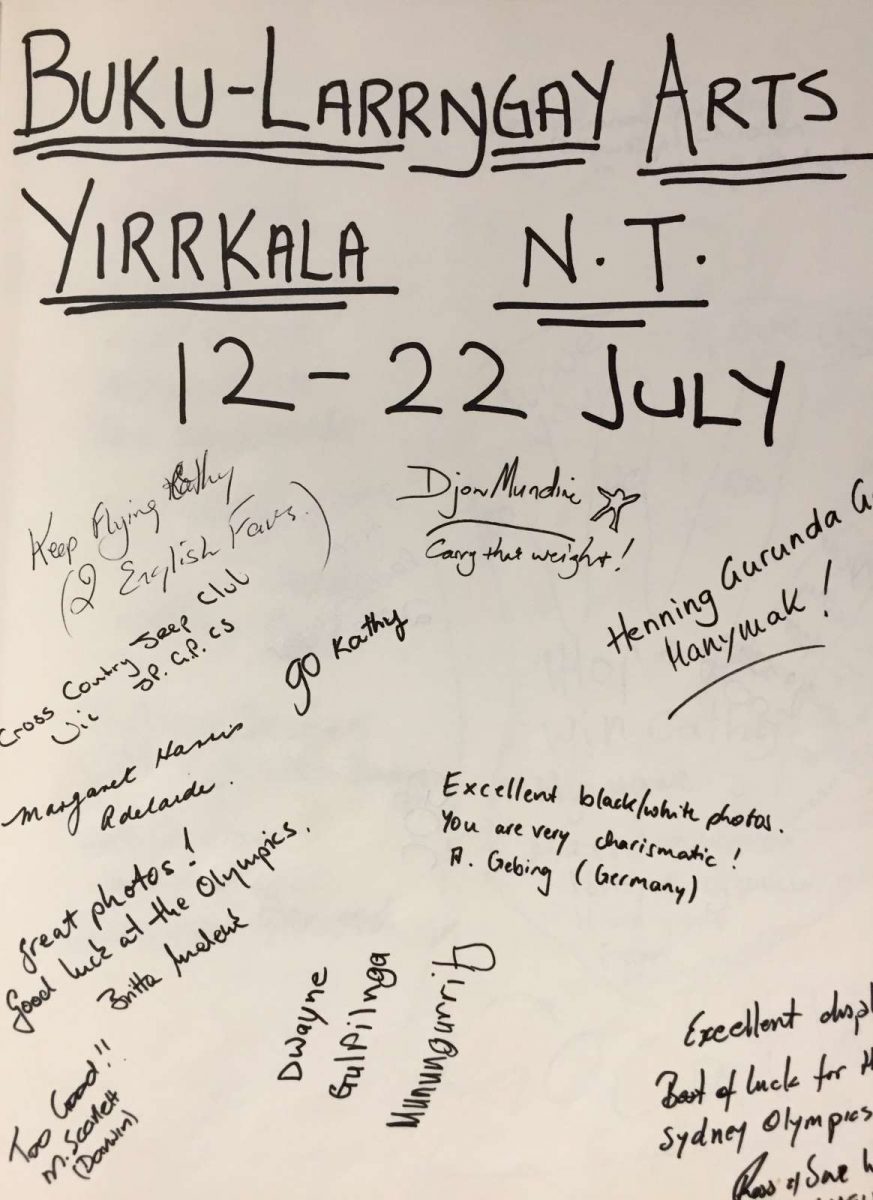 BUKU-LARRŊGAY ARTS
YIRRKALA N.T.
12-22 JULY
Keep Flying Kathy
(2 English Favs.)
Djon Mundine
Carry that weight!
Henning Gurunda G
Manymak!
Cross Country Jeep Club
Vic JP. G.P. CS
go Kathy
Margaret Harris
Adelaide.
Excellent black/white photos.
You are very charismatic!
A. Gebing (Germany)
Great photos!
Good luck at the Olympics.
Britta
Dwayne
GulPilnga
Munungurritj
Too Good!!
M. Scarlett
(Darwin)
Excellent displ
Best of luck for th
Sydney Olympics
Ross & Sue